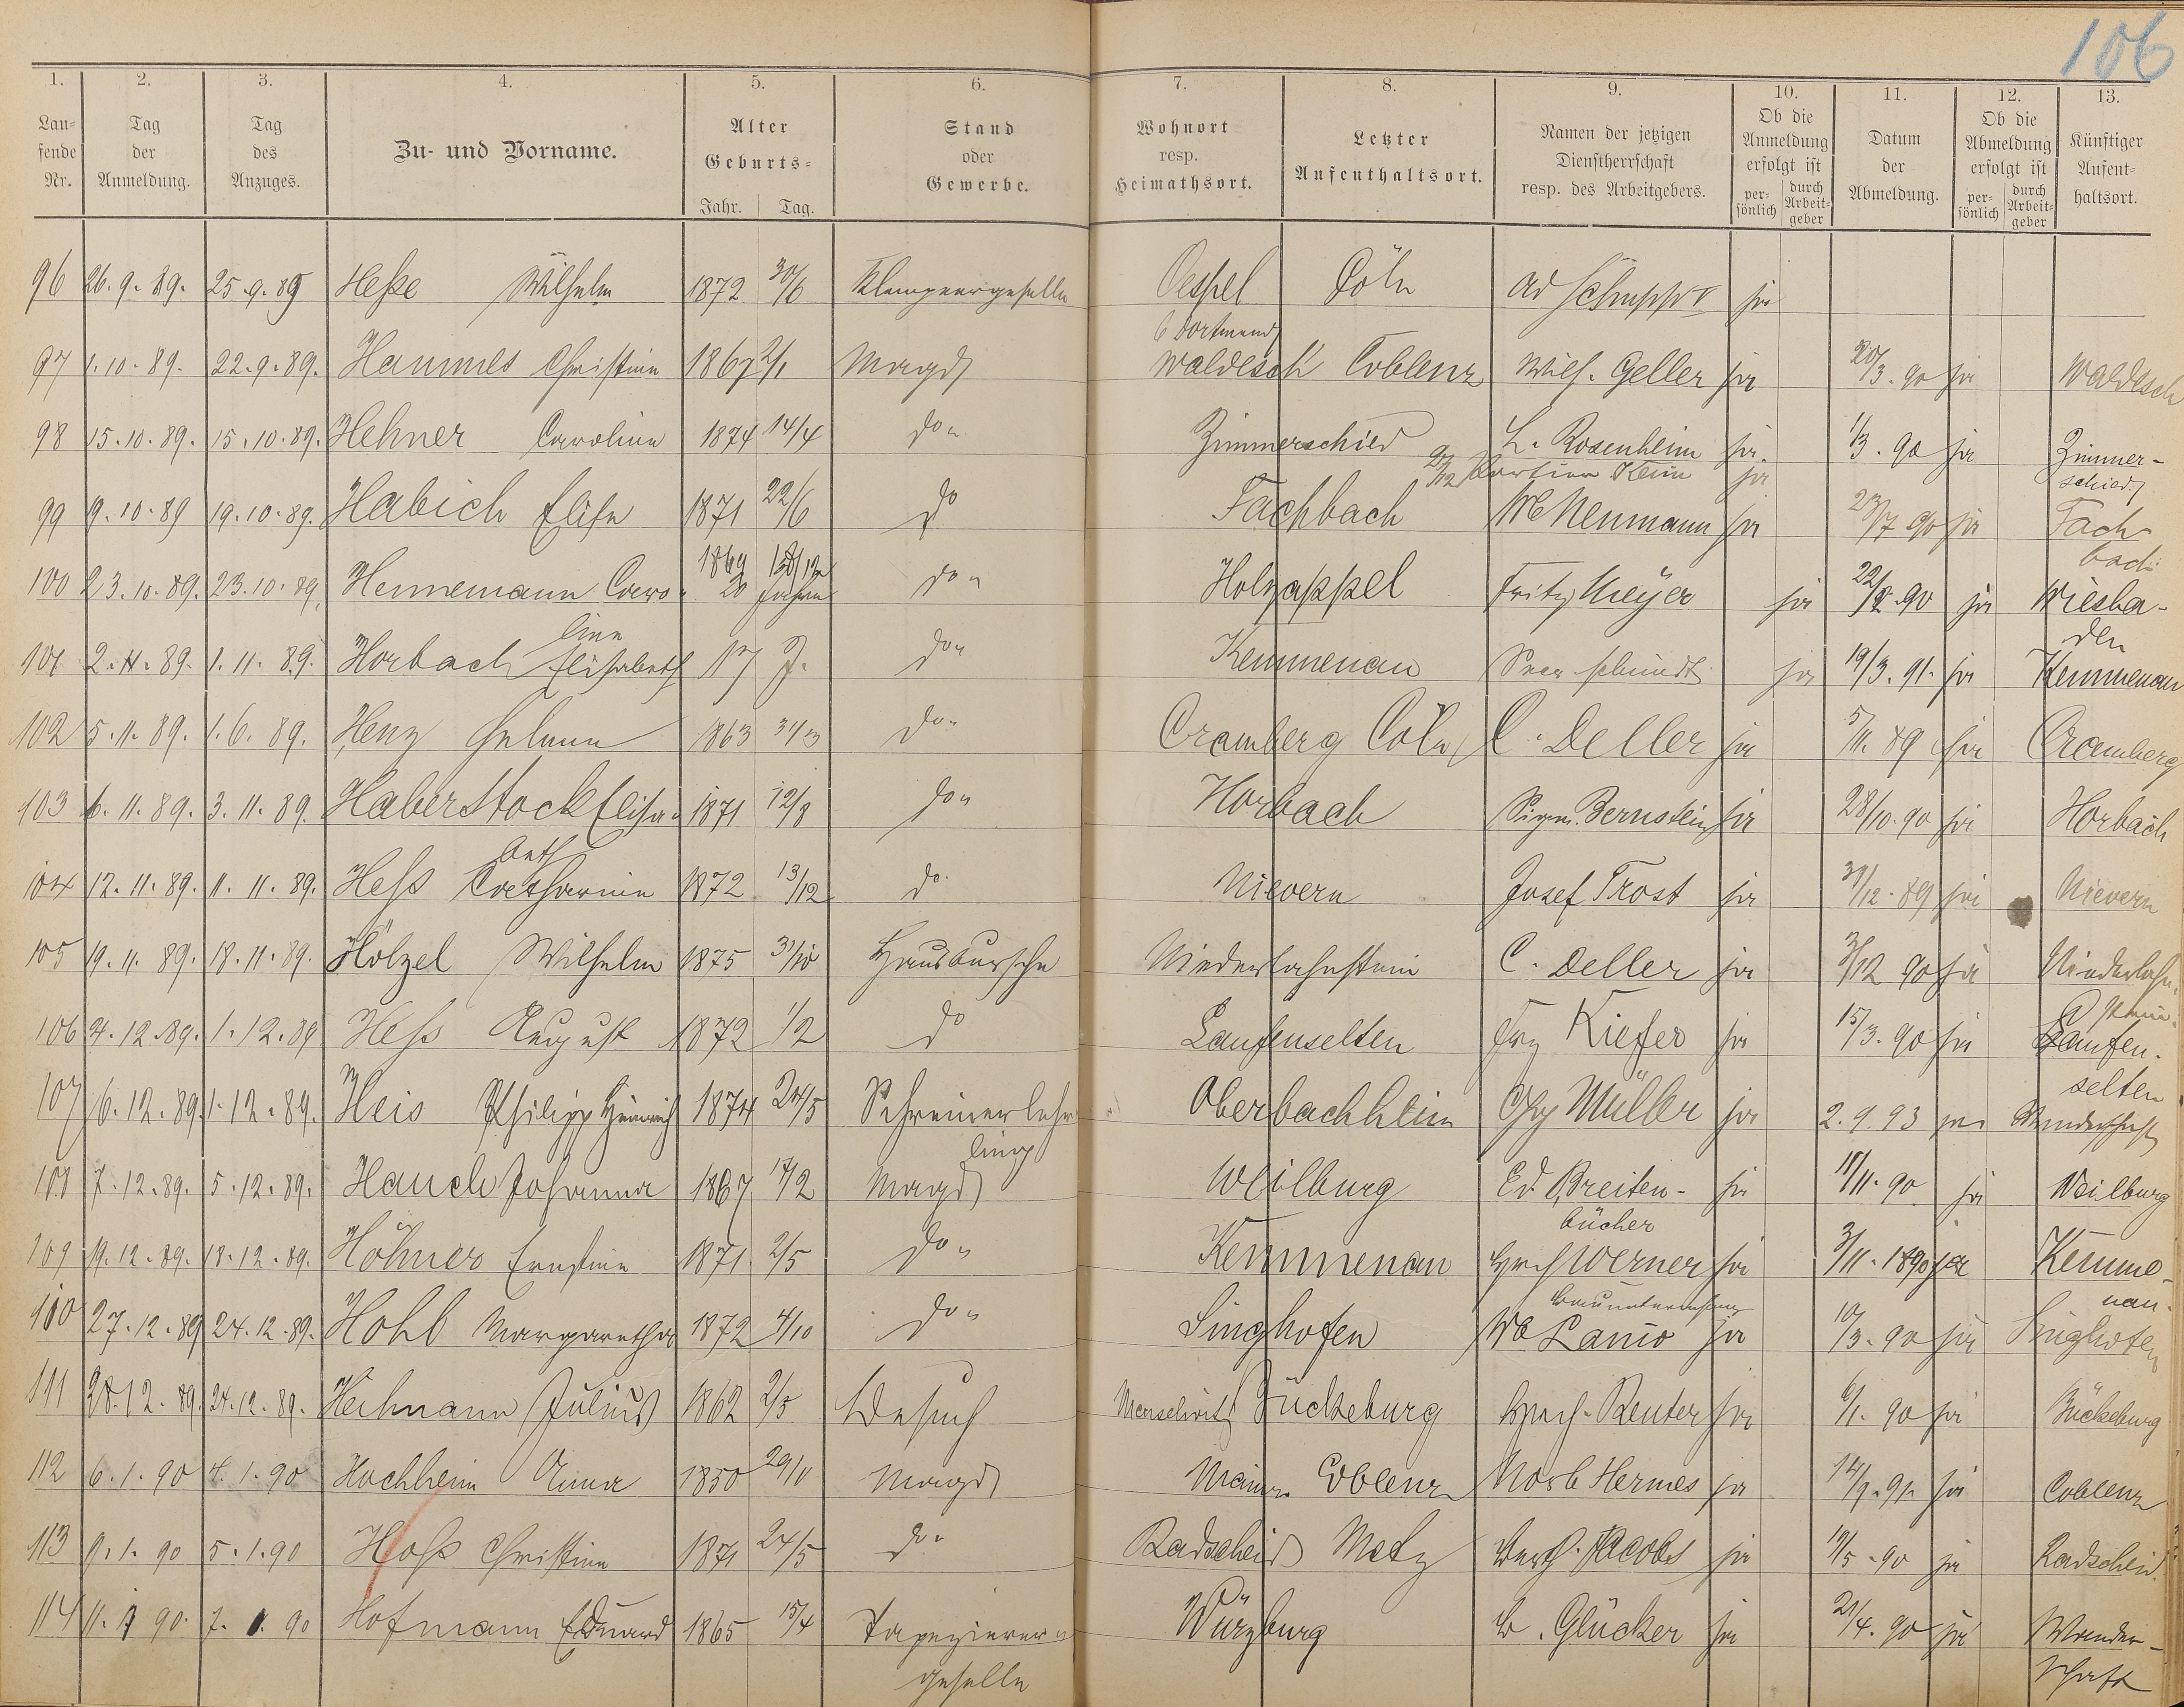 106
1. 2. 3. 4. 5. 6. 7. 8. 9. 10. 11. 12. 13.
Lau- fende Nr. Tag der Anmeldung. Tag des Anzuges. Zu- und Vorname. Alter Geburts- Jahr. Tag. Stand oder Gewerbe. Wohnort resp. Heimathsort. Letzter Aufenthaltsort. Namen der jetzigen Dienstherrschaft resp. des Arbeitgebers. Ob die Anmeldung erfolgt ist per- sönlich durch Arbeit- geber Datum der Abmeldung. Ob die Abmeldung erfolgt ist per- sönlich durch Arbeit- geber Künftiger Aufent- haltsort.
96 26.9.89. 25.9.89 Heße Wilhelm 1872 30/6 Klempnergeselle Oespel Cöln Ad Schupp ja
b Dortmund
97 1.10.89. 22.9.89. Hammes Christine 1867 2/1 Magd Waldesch Coblenz Wilh. Geller ja 20/3.90 ja Waldesch
98 15.10.89. 15.10.89. Hehner Caroline 1874 14/4 do Zimmerschied L. Rosenheim ja. 1/3.90 ja Zimmer-
schied
ja
99 9.10.89 19.10.89. Habich Elise 1871 22/6 do Fachbach We Neumann ja 23/7 90 ja Fach-
bach
1869
100 23.10.89. 23.10.89. Hennemann Caro- 20 Jahre do Holzappel Fritz Meyer ja 22/2.90 ja Wiesba-
line
den
101 2.11.89. 1.11.89. Horbach Elisabeth 17 J. do Kemmenau Schmidt ja 19/3.91. ja Kemmenau
102 5.11.89. 1.6.89. Henz Helene 1863 31/3 do Cramberg Cöln C. Deller ja 5/11.89 ja Cramberg
103 6.11.89. 3.11.89. Haberstock Elisa- 1871 12/8 do Horbach Sigm. Bernstein ja 28/10.90 ja Horbach
beth
104 12.11.89. 11.11.89. Heß Catharine 1872 13/12 do. Nievern Josef Trost ja 31/12.89 ja Nievern
105 19.11.89. 18.11.89. Hölzel Wilhelm 1875 31/10 Hausbursche Niederlahnstein C. Deller ja 31/12 90 ja Niederlahn-
stein.
106 4.12.89. 1.12.89 Heß August 1872 1/2 do Laufenselten Frz Kiefer ja 15/3.90 ja Laufen-
selten
107 6.12.89. 1.12.89. Heis Philipp Heinrich 1874 24/5 Schreinerlehr- Oberbachheim Chr Müller ja 2.9.93 ja Wanderschaft
ling
108 7.12.89. 5.12.89. Hauch Johanna 1867 17/2 Magd Weilburg Ed. Breiten- ja 11/11.90 ja Weilburg
bücher
109 19.12.89. 18.12.89. Höhner Ernstine 1871. 2/5 do Kemmenau Hrch Werner ja 3/11.1890 ja Kemme-
nau.
Bauunternehmer
110 27.12.89 24.12.89. Hohl Margaretha 1872 4/10 do Singhofen We Lanio ja 10/3.90 ja Singhofen
111 28.12.89. 24.12.89. Heihmann Julius 1862 2/5 Besuch Bückeburg Hrch. Reuter ja 6/1.90 ja Bückeburg
112 6.1.90 4.1.90 Hochheim Anna 1850 29/11 Magd Mainz Coblenz Norb Hermes ja 14/9.91. ja Coblenz
113 9.1.90 5.1.90 Hoß Christine 1871 24/5 do Radscheid Metz Berth. Jacobs ja 19/5.90 ja Radscheid.
114 11.1 90. 7.1.90 Hofmann Eduard 1865 15/4 Tapezierer- Würzburg W. Glücker ja 21/4.90 ja Wander-
geselle
schaft